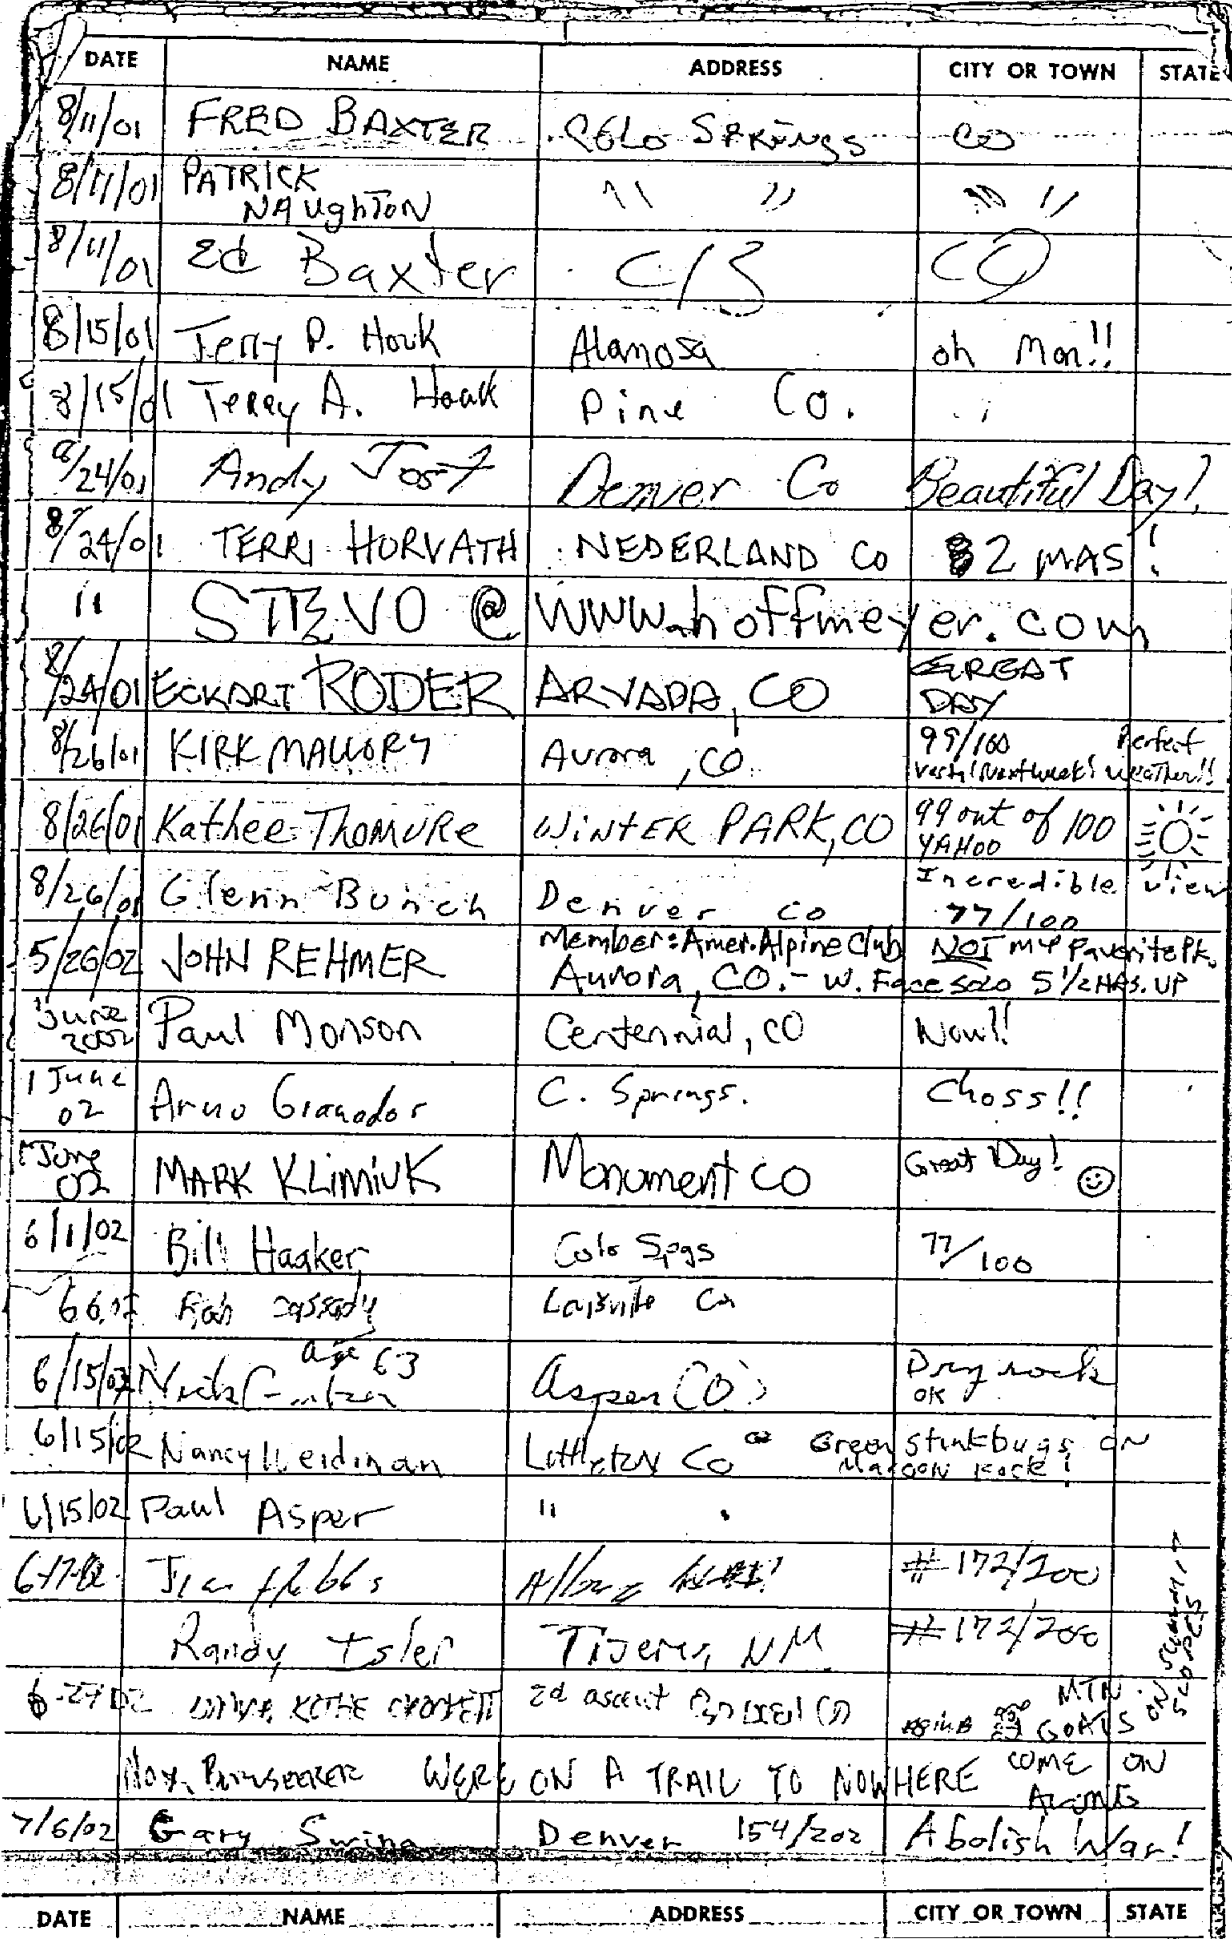 DATE NAME ADDRESS CITY OR TOWN STATE
8/11/01 FRED BAXTER COLO SPRINGS CO
8/11/01 PATRICK NAUGHTON " " "
8/11/01 Ed Baxter C/S CO
8/15/01 Terry P. Houk Alamosa oh Man!!
8/15/01 Terry A. Houk Pine Co.
8/24/01 Andy Jost Denver Co Beautiful Day!
8/24/01 TERRI HORVATH NEDERLAND CO 2 MAS!
" STEVO @ www.hoffmeyer.com
8/24/01 ECKART RODER ARVADA, CO GREAT DAY
8/26/01 KIRK MALLORY Aurora, CO. 99/100 Perfect
Vestal Next week! weather!!
8/26/01 Kathee Thomure WINTER PARK, CO 99 out of 100
YAHOO
8/26/01 Glenn Bunch Denver Co Incredible view
77/100
5/26/02 JOHN REHMER Member: Amer. Alpine Club NOT my favorite Pk.
Aurora, CO. - W. Face solo 5 1/2 HRS. UP
1 June 2002 Paul Monson Centennial, CO Now!!
1 June 02 Arno Granados C. Springs. Choss!!
1 June 02 MARK KLIMIUK Monument CO Great Day!
6/1/02 Bill Haaker Colo Spgs 77/100
6.6.02 Rob Cassady Louisville Co
6/15/02 Nick age 63 Aspen CO Dry rock
OK
6/15/02 Nancy Weidman Littleton Co Green Stinkbugs ON
Maroon Rock!
6/15/02 Paul Asper "
Jean #172/200
Randy Isler Tijeras, NM #172/200
6-27-02 KOTHE CROCKETT 2d ascent CO MTN
GOATS ON
SLOPES
WERE ON A TRAIL TO NOWHERE COME ON
7/6/02 Gary Swing Denver 154/202 Abolish War!
DATE NAME ADDRESS CITY OR TOWN STATE